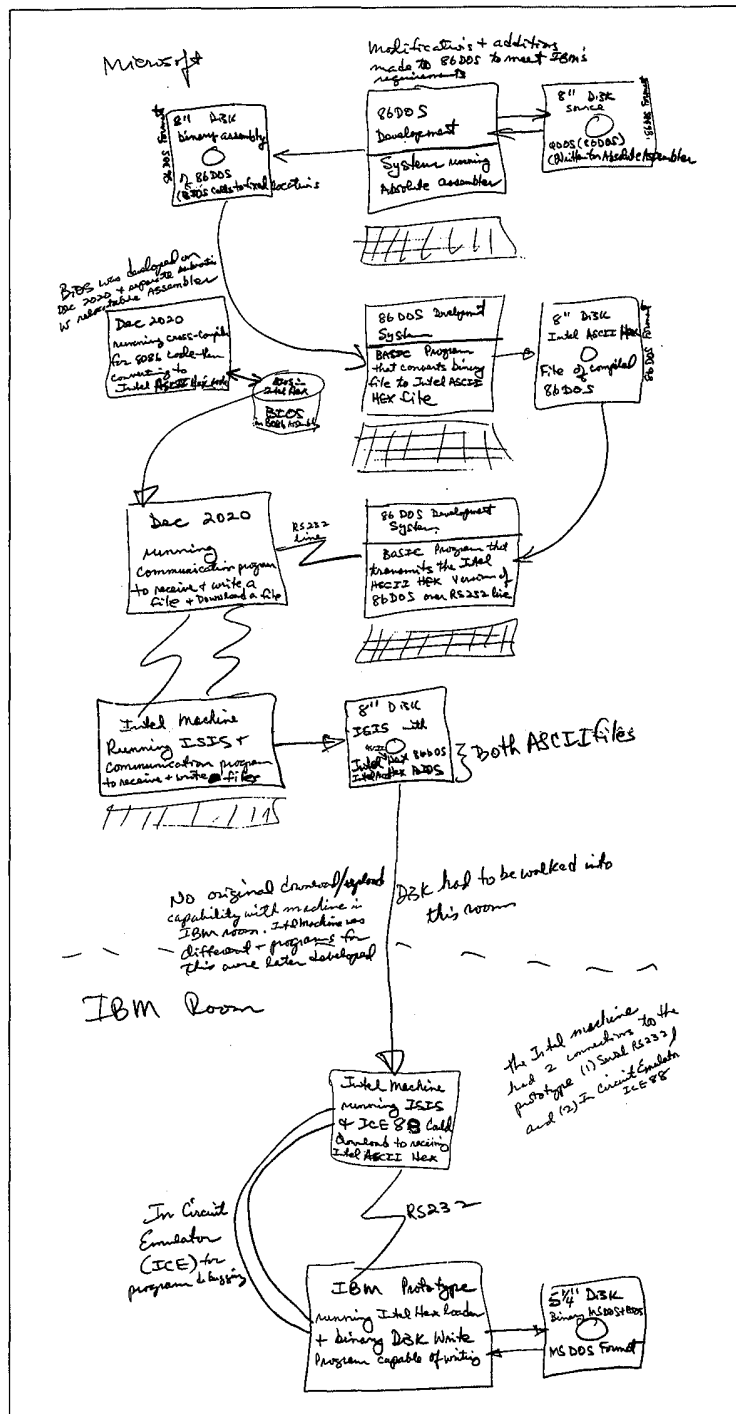 Microsoft
Modifications + additions
made to 86DOS to meet IBM's
requirements
86DOS Format
8" Disk
binary assembly
of 86DOS
(BIOS calls to fixed locations
86DOS
Development
System running
Absolute assembler
8" Disk
source
QDOS (86DOS)
(Written for Absolute Assembler
86DOS Format
BIOS was developed on
Dec 2020 + separate
w relocatable Assembler
Dec 2020
running cross-compiler
for 8086 code then
converting to
Intel ASCII Hex code
BIOS in
Intel Hex
BIOS
in 8086 Assembly
86DOS Development
System
BASIC Program
that converts binary
file to Intel ASCII
HEX file
8" Disk
Intel ASCII HEX
File of compiled
86DOS
86DOS Format
Dec 2020
running
communication program
to receive + write a
file + Download a file
RS232
line
86DOS Development
System
BASIC Program that
transmits the Intel
ASCII HEX Version of
86DOS over RS232 line
Intel Machine
Running ISIS +
communication program
to receive + write files
8" Disk
ISIS with
ASCII
Intel Hex 86DOS
Intel Hex BIOS
Both ASCII files
No original download/upload
capability with machine in
IBM room. Intel Machine was
different + programs for
this were later developed
Disk had to be walked into
this room
IBM Room
the Intel machine
had 2 connections to the
prototype (1) Serial RS232
and (2) In Circuit Emulator
ICE 88
Intel Machine
running ISIS
& ICE 88 Could
download to receiving
Intel ASCII Hex
In Circuit
Emulator
(ICE) for
program debugging
RS232
IBM Prototype
running Intel Hex loader
+ binary Disk Write
Program capable of writing
5 1/4" Disk
Binary MSDOS + BIOS
MS DOS Format